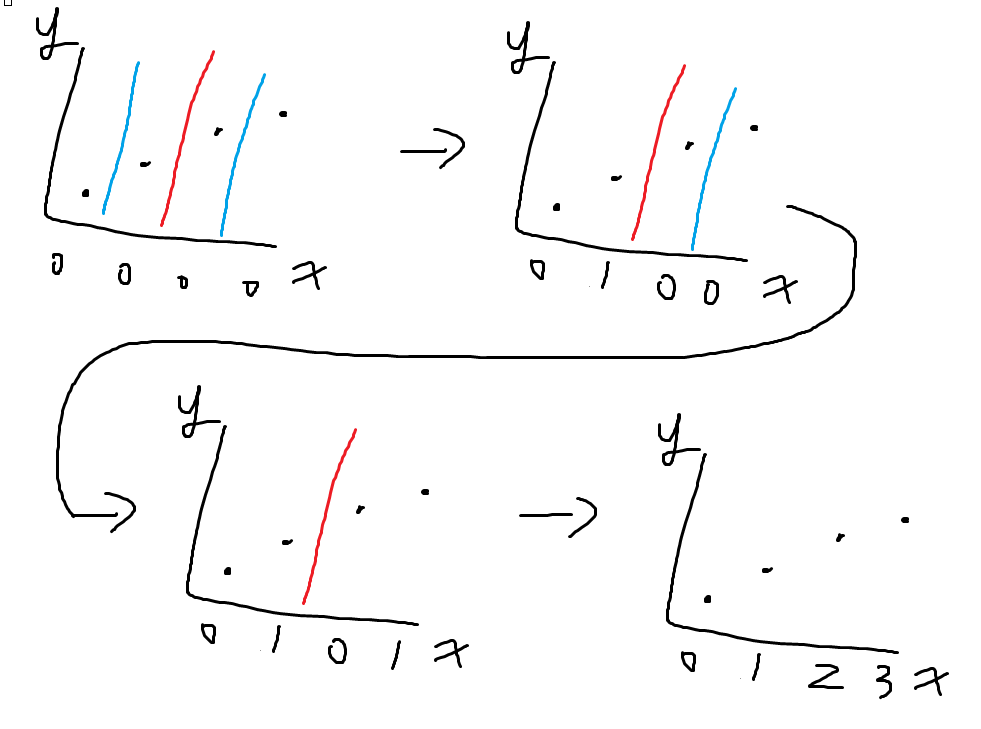 y
y
0 0 0 0 x
0 1 0 0 x
y
y
0 1 0 1 x
0 1 2 3 x